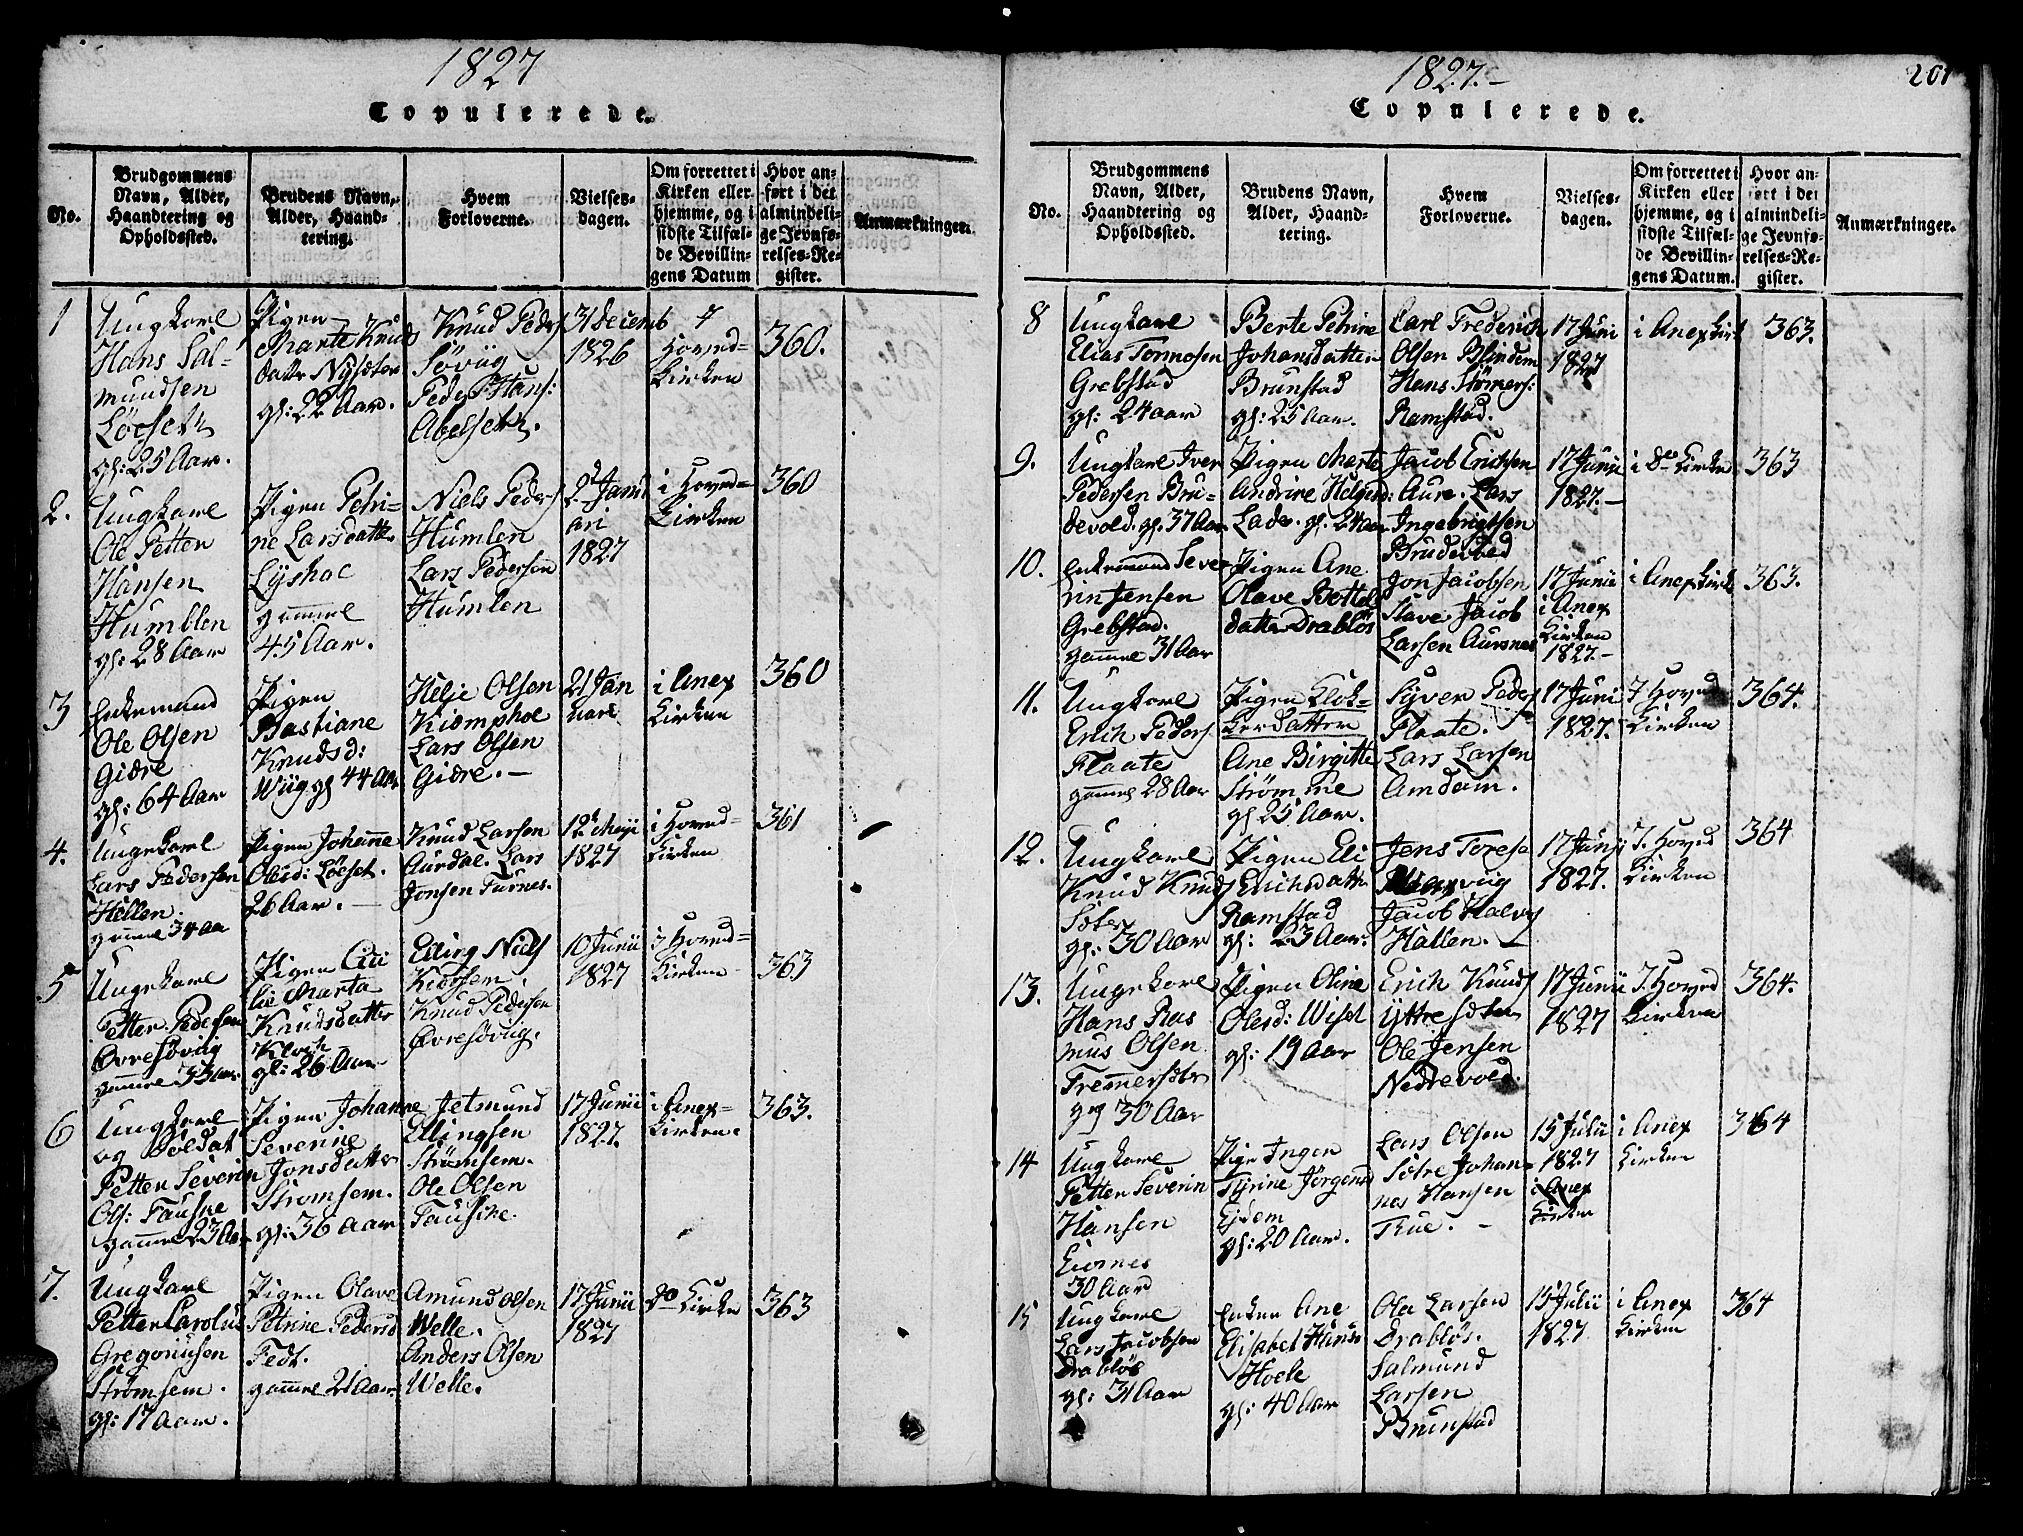 1827
Copulerede.
No.
Brudgommens Navn, Alder, Haandtering og Opholdssted.
Brudens Navn, Alder, Haandtering.
Hvem Forloverne.
Vielses-dagen.
Om forrettet i Kirken eller hjemme, og i sidste Tilfælde Bevillingens Datum
Hvor anført i det almindelige Jevnførelses-Register.
Anmærkninger.
1
Ungkarl
Hans Sal-
mundsen
Löeseth
gl: 25 Aar.
Pigen
Marte Knuds
datter Nysæter
gl: 22 Aar.
Knud Peders
Søvüg
Peder Hans:
Abelseth.
31 Decemb
1826
Hoved-
Kirken
360.
2.
Ungkarl
Ole Petter
Hansen
Humblen
gl: 28 Aar
Pigen Petri-
ne Larsdatter
Lyshol
gamel
45 Aar.
Niels Peders
Humlen
Lars Pedersen
Humlen
2d Janu
ari
1827
i Hoved-
Kirken
360
3
Enkemand
Ole Olsen
Giære
gl: 64 Aar
Pigen
Bastiane
Knudsd:
Wiig gl 44 Aar
Helje Olsen
Kiæmphol
Lars Olsen
Giære. -
21 Jan
uari
i Anex
Kirken
360
4.
Ungekarl
Lars Pedersen
Hellen.
gamel 34 Aa
Pigen Johanne
Olesd: Löeset.
26 Aar. -
Knud Larsen
Aurdal. Lars
Jonsen Furnes.
12t Maji
1827
i Hoved-
Kirken
361
5
Ungekarl
Petter Pedersen
Øvresövüg
gamel 33 Aar
Pigen
Marta
Knudsdatter
gl: 26 Aar
Elling Niels
Knud Pedersen
Øvresövüg.
10 Junii
1827
i Hoved-
Kirken
363
6
Ungkarl
og Soldat
Petter Severin
Ols: Fauske
gammel 23 Aar
Pigen Johanne
Severine
Jonsdatter
Strömsem.
gl: 36 Aar
Jetmund
Ellingsen
Strömsem.
Ole Olsen
Fauske.
17 Junii
1827.
i Anex-
Kirken.
363.
7.
Ungkarl
Petter Carolus
Gregoriusen
Strømsem.
gl: 17 Aar.
Pigen Olave
Petrine Pedersd
Fedt.
gammel 21 Aar.
Amund Olsen
Welle.
Anders Olsen
Welle.
17 Junii
1827
do Kirke
363
1827.-
201
Copulerede.
No.
Brudgommens Navn, Alder, Haandtering og Opholdssted.
Brudens Navn, Alder, Haandtering.
Hvem Forloverne.
Vielses-dagen.
Om forrettet i Kirken eller hjemme, og i sidste Tilfælde Bevillingens Datum.
Hvor anført i det almindelige Jevnførelses-Register.
Anmærkninger.
8
Ungkarl
Elias Tormosen
Grebstad
gl: 24 aar
Berte Petrine
Johansdatter
Brunstad
gl: 25 Aar.
Carl Frederich
Olsen Blindem
Hans Stömers:
Ramstad.
17 Juni
1827
i Anexkirk
363.
9.
Ungkarl Iver
Pedersen Bru-
devold. gl. 37 Aar
Pigen Marte
Andrine Helgesd:
Lade. gl. 24 aar
Jacob Erichsen
Aure. Lars
Ingebrigtsen
17 Junii
1827. -
i do Kirke
363
10.
Enkemand Seve
rin Jensen
Grebstad.
gamel 31 Aar
Pigen Ane
Olave Bottel
datter Drablös
Jon Jacobsen
Slave Jacob
Larsen Aursnes
17 Junii
i Anex
Kirken
1827. -
i Anexkirk
363.
11.
Ungkarl
Erich Peders
Flaate
gammel 28 Aar
Pigen Klok-
kerdatter
Ane Birgitte
Strømme
gl 25 Aar.
Syver Peders
Flaate.
Lars Larsen
Amdam.
17 Juni
1827.
I Hoved
Kirken
364.
12.
Ungkarl
Knud Knuds
Sæter
gl: 30 Aar
Pigen Eli
Erichsdatter
Ramstad
gl: 23 Aar.
Jens Torese
Jacob Halvs
Hallen. -
17 Junii
1827.
I. Hoved
Kirken
364
13.
Ungekarl
Hans Ras
mus Olsen
Tremersæter
30 Aar
Pigen Oline
Olesd: Wiset
gl: 19 Aar
Erich Knuds
Yttresæter
Ole Jensen
Nedrevold.
17 Junii
1827
I. Hoved
Kirken
364.
14
Ungkarl
Petter Severin
Hansen
Eidnes
30 Aar
Pige Inger
Tyrine Jörgens
Ejdem
gl: 20 Aar.
Lars Olsen
Sætre Johan-
nes Hansen
Rue. -
15 Julii
1827
i Anex
Kirke
i Anex
Kirken
364
15
Ungkarl
Lars Jacobsen
Drablös
gl: 31 Aar
Enken Ane
Elisabet Hans
Hoele
gl: 40 Aar
Ole Larsen
Drablös.
Salmund
Larsen
Brunstad
15 Julii
1827
i Anex
Kirken
364